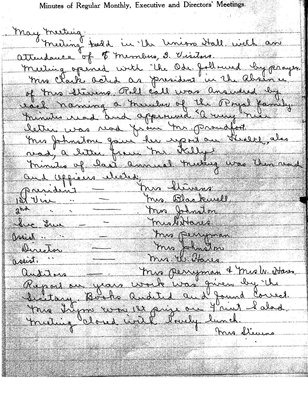 Minutes of Regular Monthly, Executive and Directors' Meetings.
May Meeting
Meeting held in the Union Hall with an
attendance of 8 Members, 2 Visitors.
Meeting opened with the Ode followed by prayer
Mrs Clark acted as President in the Absence
of Mrs Stevens. Roll call was answered by
each naming a Member of the Royal family
Minutes read and approved. A very nice
letter was read from Mr
Mrs Johnston gave her report on Health, also
read a letter from Mr Kelly.
Minutes of last annual Meeting was then read
and officers elected,
President — Mrs Stevens
1st Vice — Mrs. Blackwell
2nd — Mrs Johnston
Sec. — Mrs Hares
Assist. — Mrs Perryman
Director — Mrs Johnston
Assist. — Mrs W. Hares
Auditors — Mrs Perryman & Mrs W. Hares
Report on years work was given by the
Books Audited and found correct.
Mrs won 1st prize on Fruit Salad.
Meeting closed with lovely lunch.
Mrs. Stevens